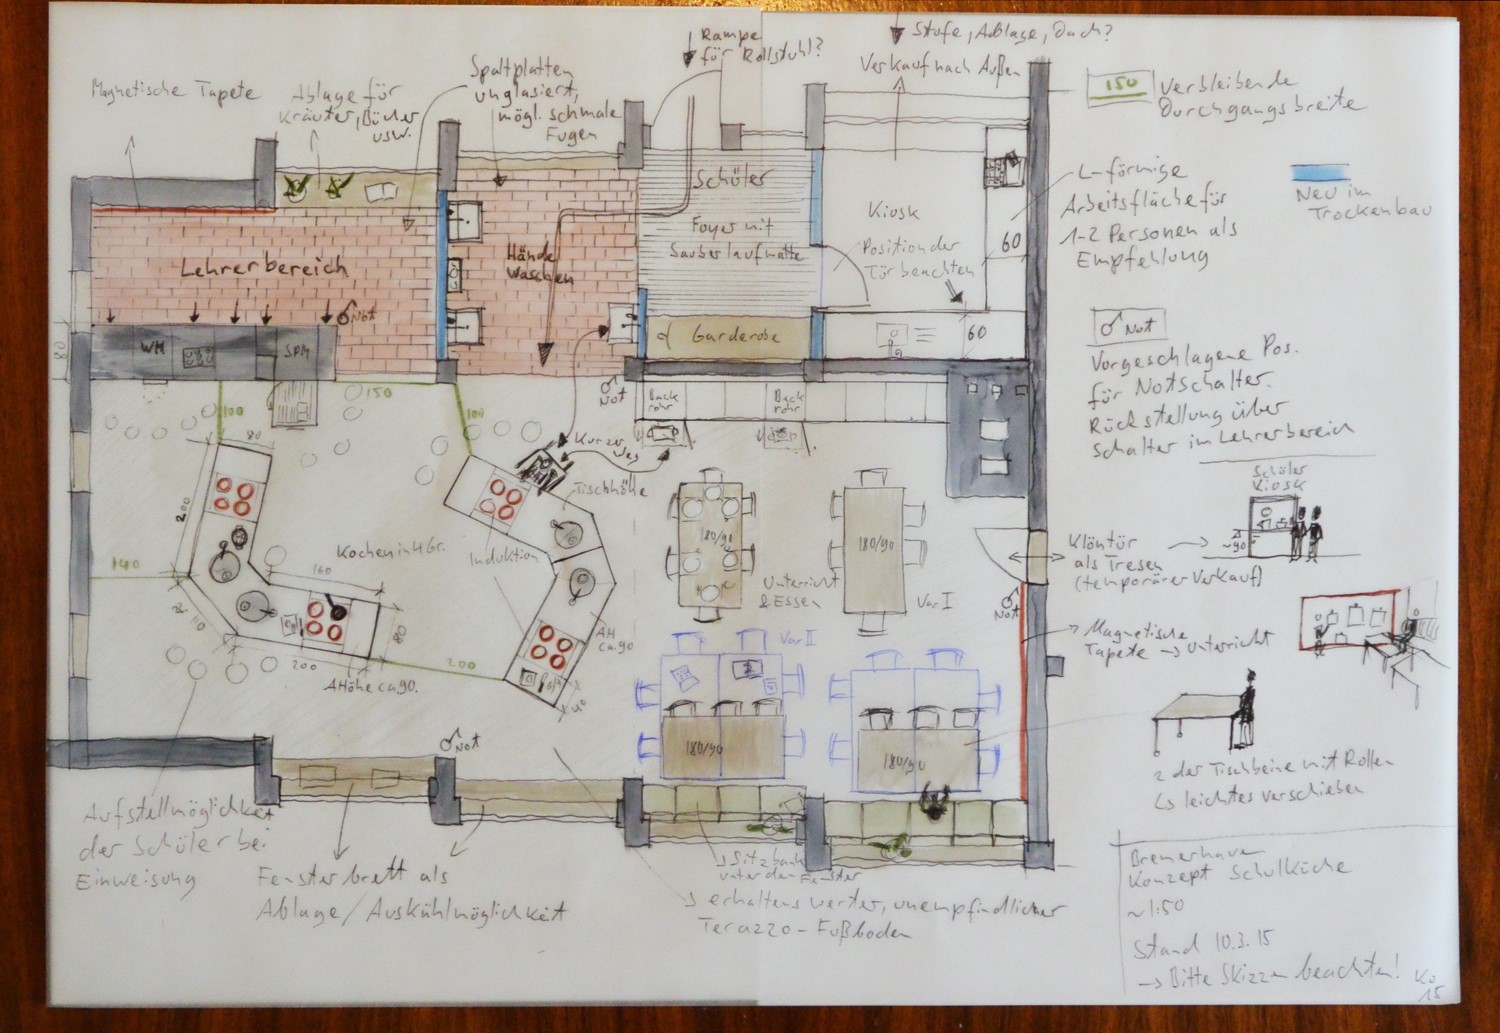 Magnetische Tapete
Ablage für
Kräuter, Bücher
usw.
Spaltplatten
unglasiert,
mögl. schmale
Fugen
Rampe
für Rollstuhl?
Stufe, Ablage, Dach?
Verkauf nach Außen
150
Verbleibende
Durchgangsbreite
L-förmige
Arbeitsfläche für
1-2 Personen als
Empfehlung
Neu im
Trockenbau
Not
Vorgeschlagene Pos.
für Notschalter.
Rückstellung über
Schalter im Lehrerbereich
Lehrerbereich
Not
WM
SPM
80
Hände
Waschen
Schüler
Foyer mit
Sauberlaufmatte
Garderobe
Kiosk
Position der
Tür beachten
60
60
Not
Back
rohr
Back
rohr
150
100
100
80
Kurzer
Weg
Tischhöhe
200
Kochen in 4 Gr.
Induktion
140
160
80
110
80
200
200
AHöhe ca 90.
AH
ca 90
40
180/90
180/90
Unterricht
& Essen
Var I
Var II
180/90
180/90
Not
Not
Schüler
Kiosk
~90
Klöntür
als Tresen
(temporärer Verkauf)
Magnetische
Tapete → Unterricht
2 der Tischbeine mit Rollen
↳ leichtes verschieben
Aufstellmöglichkeit
der Schüler bei
Einweisung
Fensterbrett als
Ablage/Auskühlmöglichkeit
→ Sitzbank
unter den Fenster
→ erhaltenswerter, unempfindlicher
Terazzo-Fußboden
Bremerhaven
Konzept Schulküche
~1:50
Stand 10.3.15
→ Bitte Skizzen beachten!
Ko
15